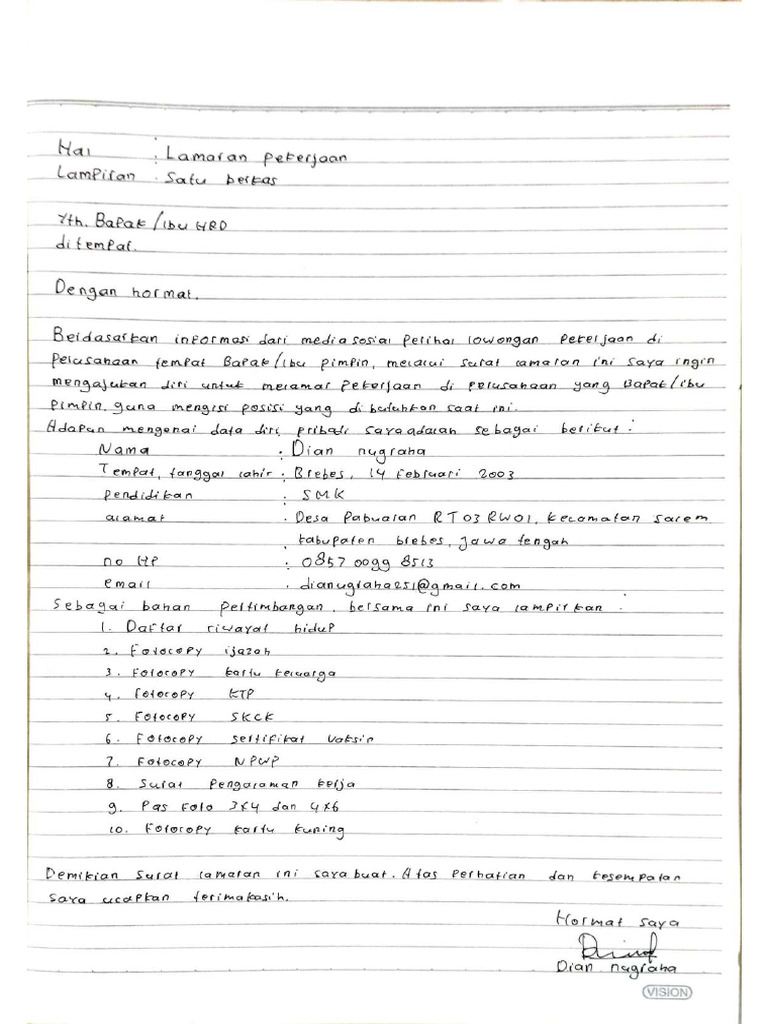 Hal : Lamaran Pekerjaan
Lampiran : Satu berkas
Yth. Bapak/ibu HRD
ditempat.
Dengan hormat.
Berdasarkan informasi dari media sosial perihal lowongan pekerjaan di
perusahaan tempat Bapak/ibu pimpin, melalui surat lamaran ini saya ingin
mengajukan diri untuk melamar pekerjaan di perusahaan yang Bapak/ibu
pimpin. guna mengisi posisi yang dibutuhkan saat ini.
Adapun mengenai data diri, pribadi saya adalah sebagai berikut :
Nama : Dian nugraha
Tempat, tanggal lahir : Brebes, 14 februari 2003
pendidikan : SMK
alamat : Desa Pabuaran RT03 RW01, kecamatan salem
kabupaten brebes, jawa tengah
no HP : 0857 0099 8513
email : dianugraha251@gmail.com
Sebagai bahan pertimbangan, bersama ini saya lampirkan :
1. Daftar riwayat hidup
2. Fotocopy ijazah
3. Fotocopy kartu keluarga
4. fotocopy KTP
5. Fotocopy SKCK
6. Fotocopy sertifikat vaksin
7. Fotocopy NPWP
8. Surat Pengalaman kerja
9. Pas Foto 3x4 dan 4x6
10. Fotocopy kartu kuning
Demikian surat lamaran ini saya buat. Atas perhatian dan kesempatan
saya ucapkan terimakasih.
Hormat saya
Dian nugraha
VISION